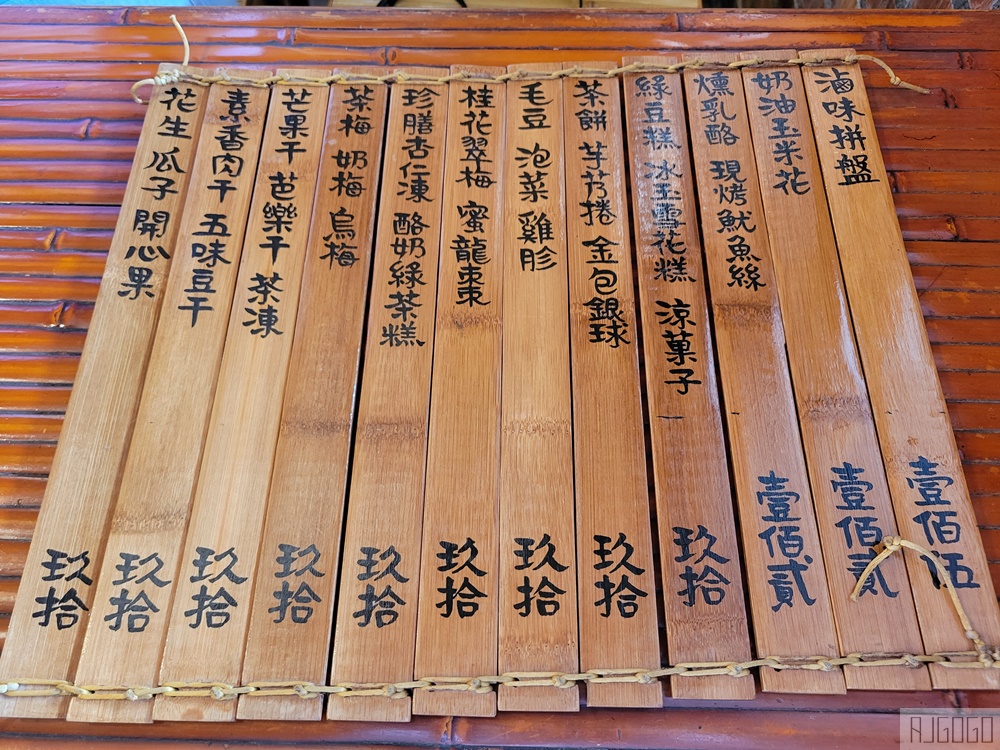 滷味拼盤 壹佰伍
奶油玉米花 壹佰貳
燻乳酪 現烤魷魚絲 壹佰貳
綠豆糕 冰玉雪花糕 涼菓子 玖拾
茶餅 芋艿捲 金包銀球 玖拾
毛豆 泡菜 雞胗 玖拾
桂花翠梅 蜜龍棗 玖拾
珍膳杏仁凍 酪奶綠茶糕 玖拾
茶梅 奶梅 烏梅 玖拾
芒果干 芭樂干 茶凍 玖拾
素香肉干 五味豆干 玖拾
花生 瓜子 開心果 玖拾
AJGOGO